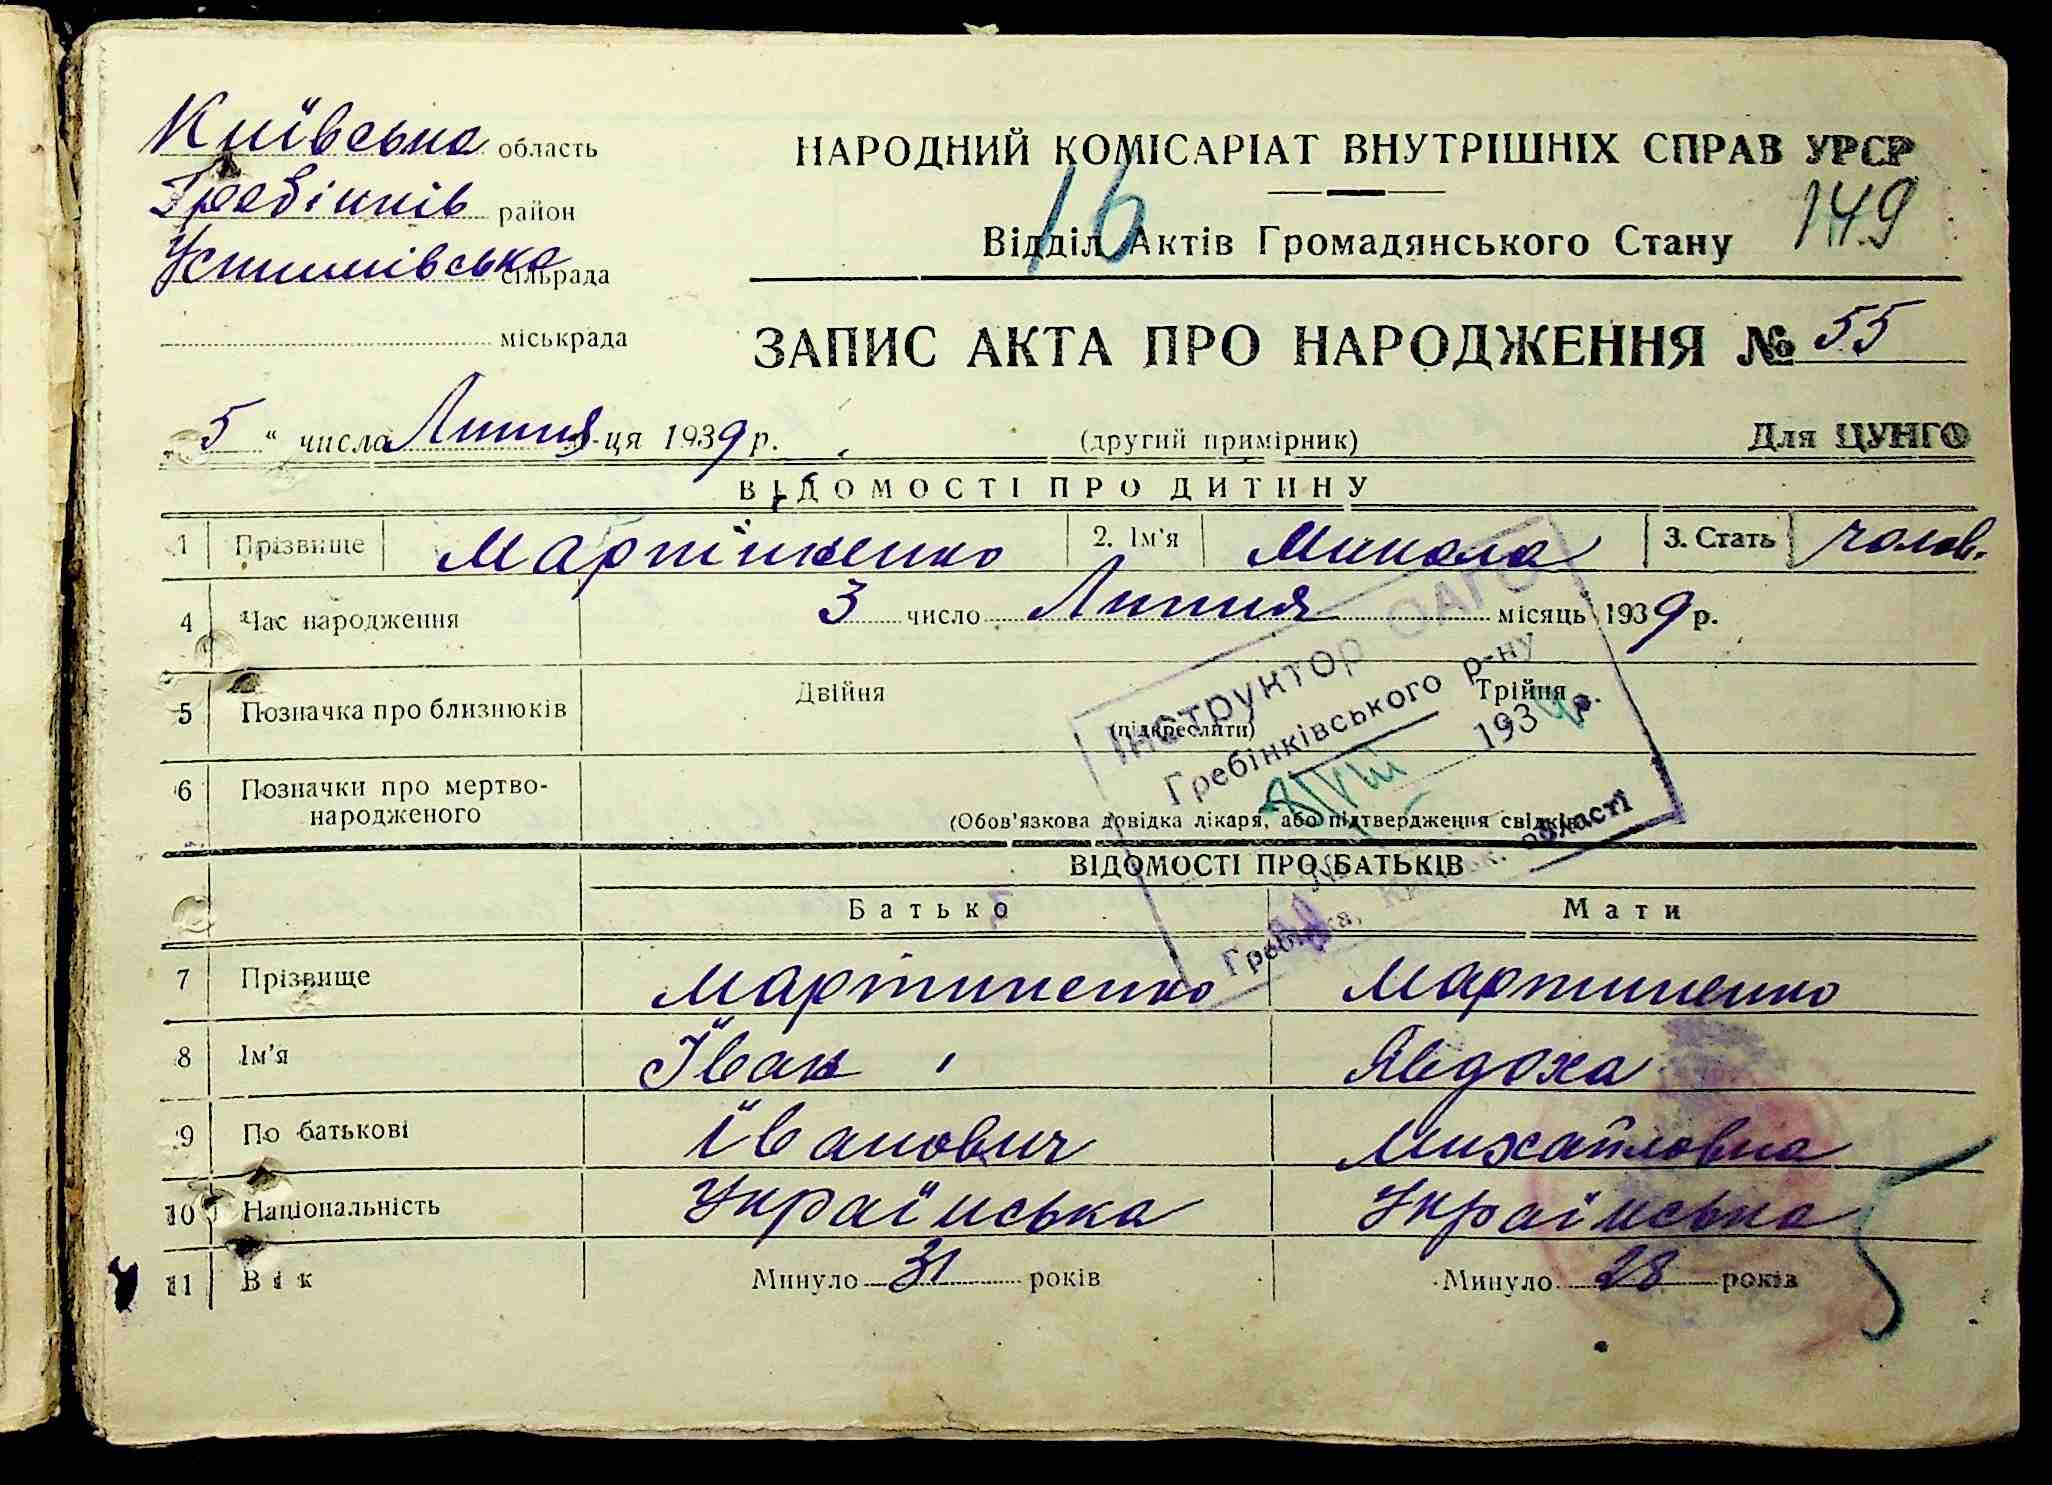 Київська область
Гребінків район
Устимівська сільрада
міськрада
НАРОДНИЙ КОМІСАРІАТ ВНУТРІШНІХ СПРАВ УРСР
16
149
Відділ Актів Громадянського Стану
ЗАПИС АКТА ПРО НАРОДЖЕННЯ № 55
5 " числа Липня м-ця 1939 р. (другий примірник) Для ЦУНГО
ВІДОМОСТІ ПРО ДИТИНУ
1 Прізвище Мартіненко 2. Ім'я Микола 3. Стать чолов.
4 Час народження 3 число Липня місяць 1939 р.
5 Позначка про близнюків Двійня Трійня
(підкреслити)
6 Позначки про мертво-
народженого
(Обов'язкова довідка лікаря, або підтвердження свідків)
Інструктор ОАГС
Гребінківського р-ну
8/VIII 1939 р.
№
Гребінка, Київськ. області
ВІДОМОСТІ ПРО БАТЬКІВ
Батько Мати
7 Прізвище Мартиненко Мартиненко
8 Ім'я Їван Явдоха
9 По батькові Їванович Михайловна
10 Національність Українська Українська
11 Вік Минуло 31 років Минуло 28 років